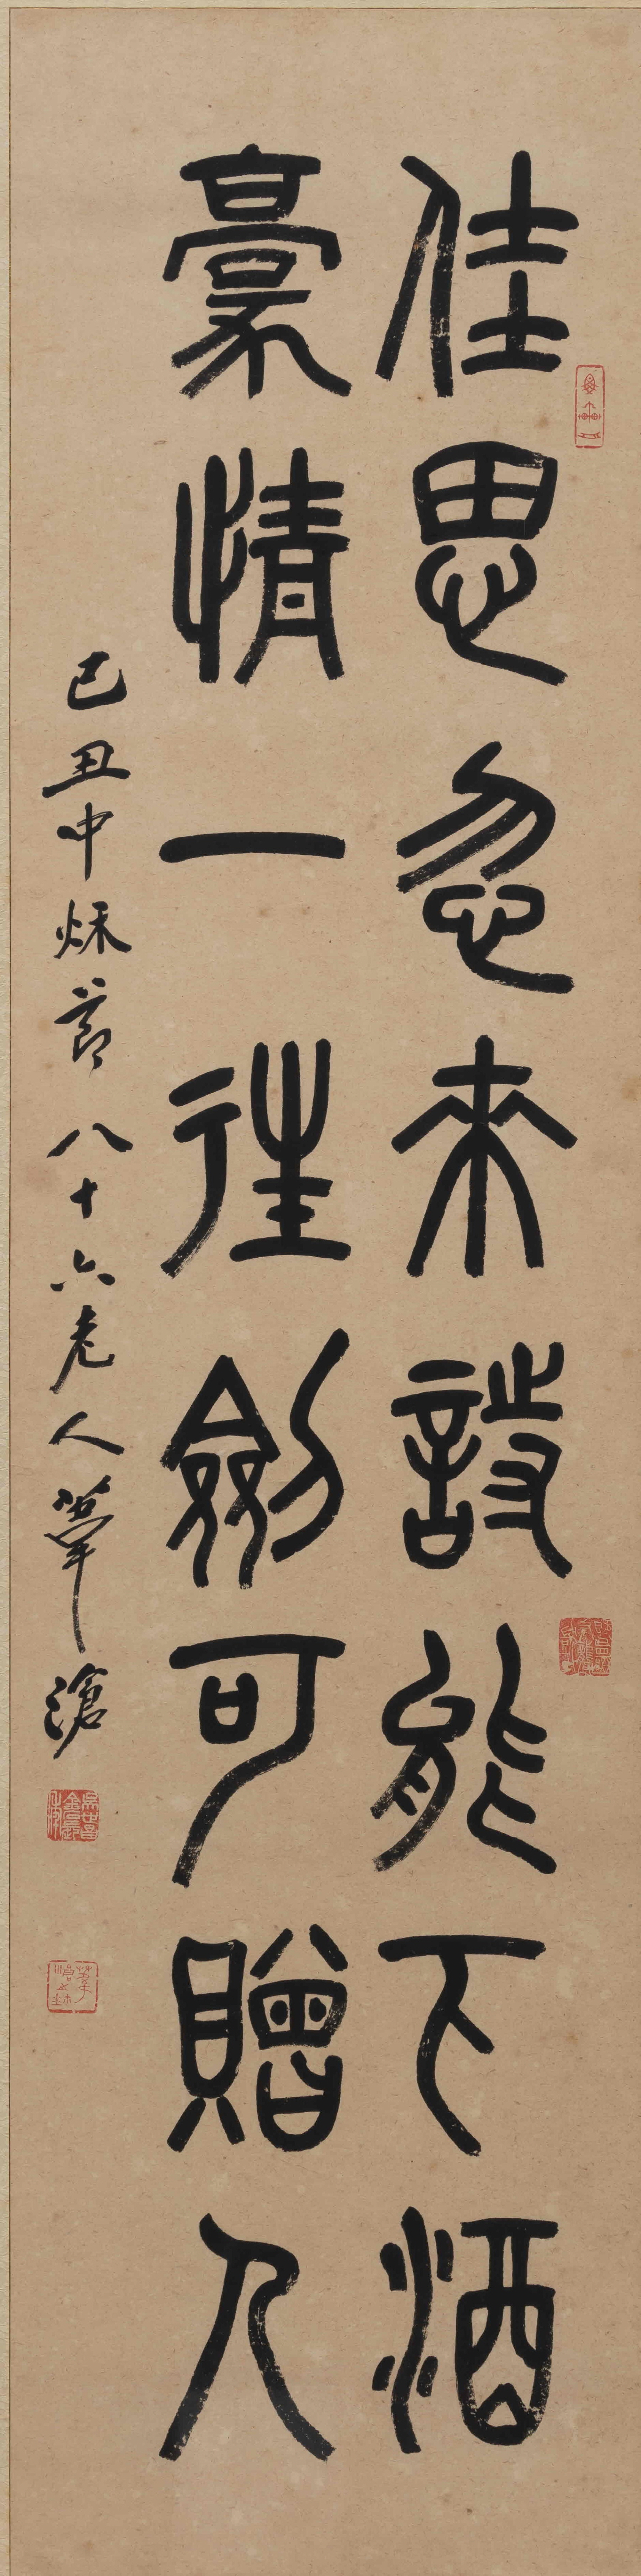 佳思忽來詩能下酒
豪情一往劍可贈人
己丑中秌節八十六老人葦滄